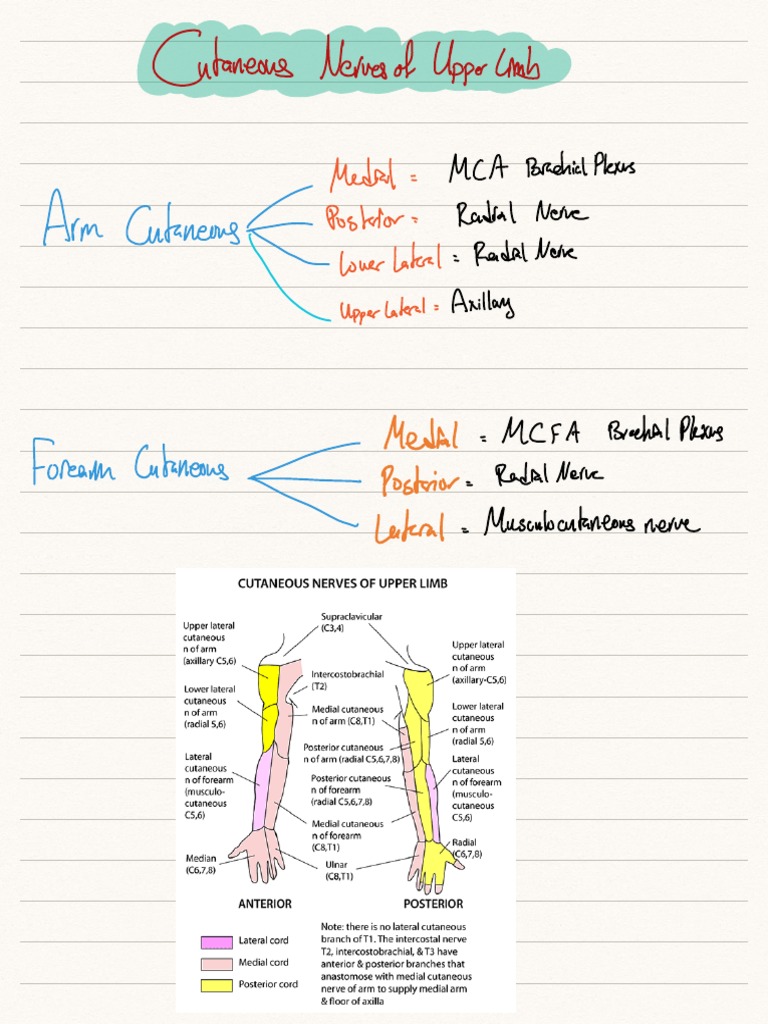 Cutaneous Nerves of Upper Limb
Medial = MCA Brachial Plexus
Arm Cutaneous
Posterior = Radial Nerve
Lower Lateral = Radial Nerve
Upper Lateral = Axillary
Medial = MCFA Brachial Plexus
Forearm Cutaneous
Posterior = Radial Nerve
Lateral = Musculocutaneous nerve
CUTANEOUS NERVES OF UPPER LIMB
Supraclavicular
(C3,4)
Upper lateral
cutaneous
n of arm
(axillary C5,6)
Lower lateral
cutaneous
n of arm
(radial 5,6)
Lateral
cutaneous
n of forearm
(musculo-
cutaneous
C5,6)
Median
(C6,7,8)
Intercostobrachial
(T2)
Medial cutaneous
n of arm (C8,T1)
Posterior cutaneous
n of arm (radial C5,6,7,8)
Posterior cutaneous
n of forearm
(radial C5,6,7,8)
Medial cutaneous
n of forearm
(C8,T1)
Ulnar
(C8,T1)
Upper lateral
cutaneous
n of arm
(axillary-C5,6)
Lower lateral
cutaneous
n of arm
(radial 5,6)
Lateral
cutaneous
n of forearm
(musculo-
cutaneous
C5,6)
Radial
(C6,7,8)
ANTERIOR
POSTERIOR
Lateral cord
Medial cord
Posterior cord
Note: there is no lateral cutaneous
branch of T1. The intercostal nerve
T2, intercostobrachial, & T3 have
anterior & posterior branches that
anastomose with medial cutaneous
nerve of arm to supply medial arm
& floor of axilla